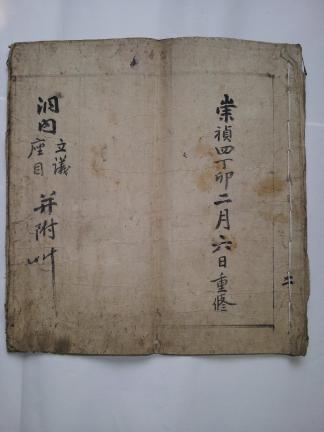 崇禎四丁卯二月六日重修
洞內
立議
座目
并附艸
二